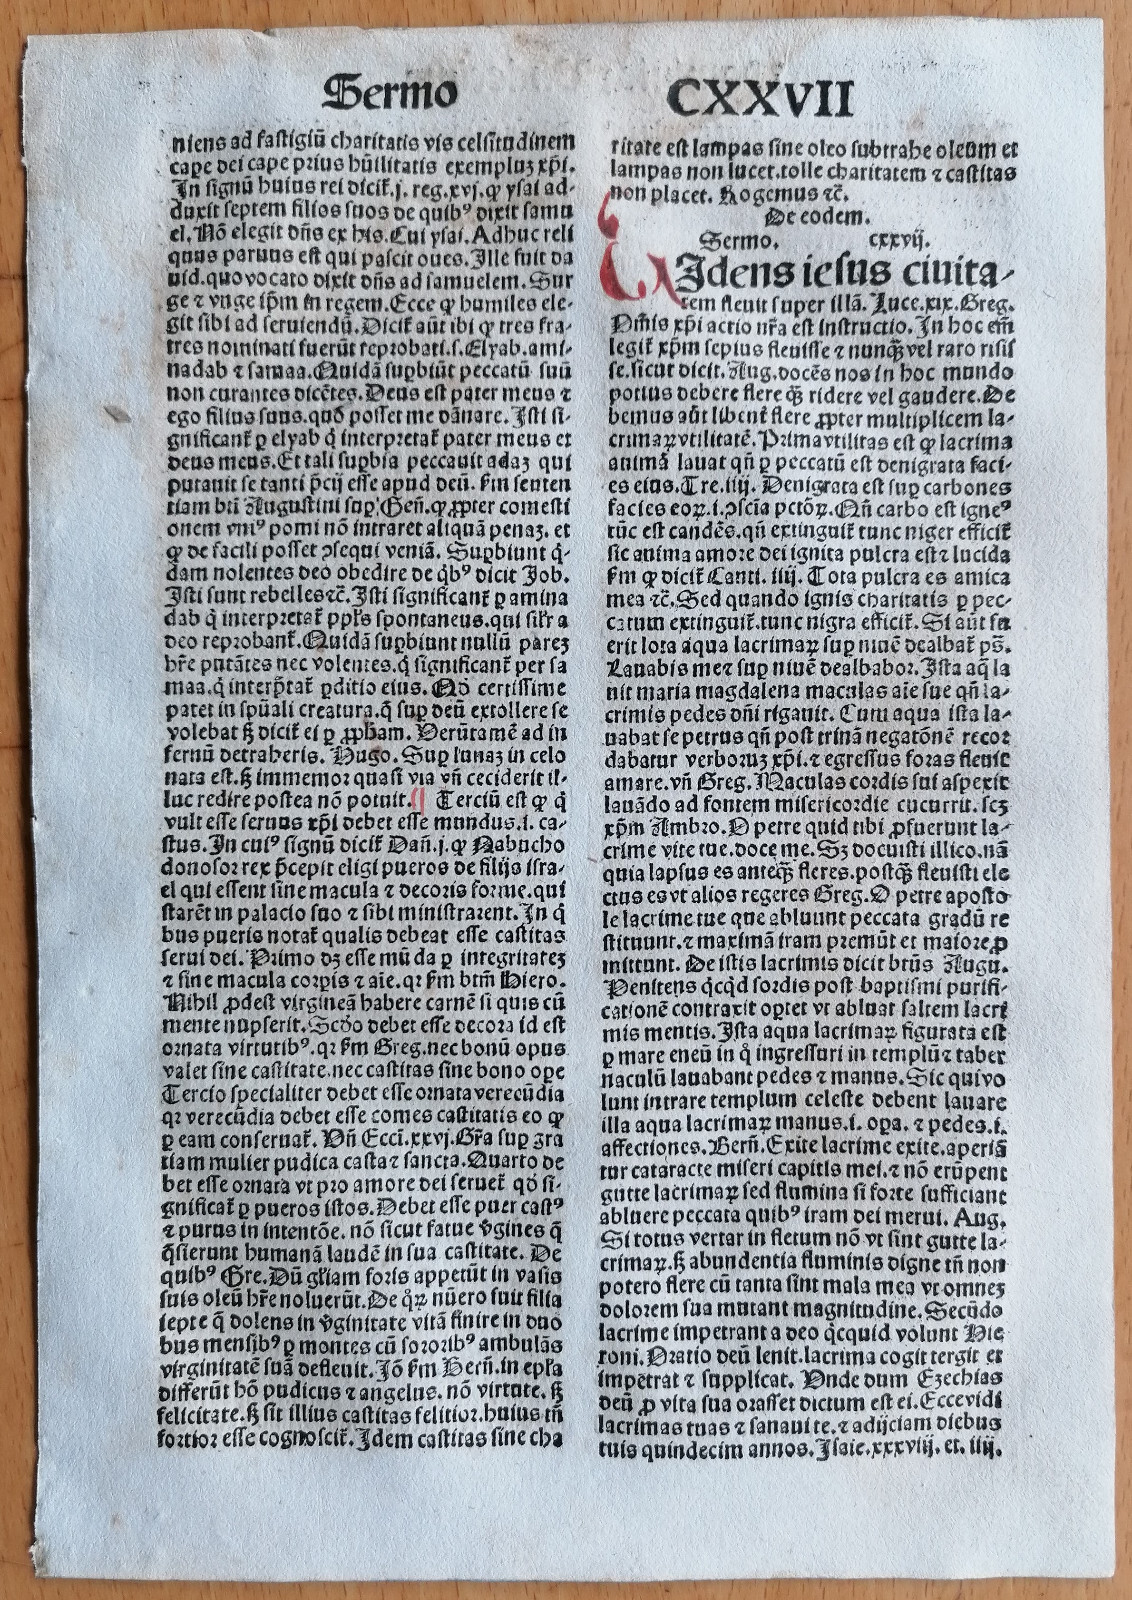 Sermo
CXXVII
niens ad fastigiū charitatis vis celsitudinem
cape dei cape prius hūilitatis exempluȝ xp̄i.
In signū huius rei dicit̄.j. reg.xvj. ꝙ ysai ad-
duxit septem filios suos de quibꝰ dixit samu
el. Nō elegit dn̄s ex his. Cui ysai. Adhuc reli
quus paruus est qui pascit oues. Ille fuit da
uid. quo vocato dixit dn̄s ad samuelem. Sur
ge ⁊ vnge ip̄m in regem. Ecce ꝙ humiles ele-
git sibi ad seruiendū. Dicit̄ aūt ibi ꝙ tres fra-
tres nominati fuerūt reprobati.s. Elyab. ami-
nadab ⁊ samaa. Quidā suꝑbiūt peccatū suū
non curantes dicētes. Deus est pater meus ⁊
ego filius suus. quō posset me dānare. Isti si-
gnificant̄ ꝑ elyab q̇ interpretat̄ pater meus et
deus meus. Et tali suꝑbia peccauit adaȝ qui
putauit se tanti p̄cij esse apud deū. ẜm senten
tiam bti Augustini suꝑ Gen̄. ꝙ ꝓpter comesti
onem vniꝰ pomi nō intraret aliquā penaȝ. et
ꝙ de facili posset ꝯsequi veniā. Suꝑbiunt q̇-
dam nolentes deo obedire de q̇bꝰ dicit Job.
Isti sunt rebelles ⁊c̄. Isti significant̄ ꝑ amina
dab q̇ interpretat̄ ppl̄s spontaneus. qui sil̄r a
deo reprobant̄. Quidā suꝑbiunt nullū pareȝ
hr̄e putātes nec volentes. q̇ significant̄ per sa
maa. q̇ interp̄tat̄ ꝑditio eius. Qd̄ certissime
patet in sp̄uali creatura. q̄ suꝑ deū extollere se
volebat ẜꝫ dicit̄ ei ꝑ ꝓph̄am. Verūtamē ad in
fernū detraheris. Hugo. Suꝑ lunaȝ in celo
nata est. ẜꝫ immemor quasi via vn̄ ceciderit il-
luc redire postea nō potuit. ¶ Terciū est ꝙ q̇
vult esse seruus xp̄i debet esse mundus.i. ca-
stus. In cuiꝰ signū dicit̄ Dan̄.j. ꝙ Nabucho
donosor rex p̄cepit eligi pueros de filijs isra-
el qui essent sine macula ⁊ decoris forme. qui
starēt in palacio suo ⁊ sibi ministrarent. In q̇
bus pueris notat̄ qualis debeat esse castitas
serui dei. Primo dȝ esse mūda ꝑ integritateȝ
⁊ sine macula corꝑis ⁊ aīe. qꝛ ẜm btm̄ Hiero.
Nihil ꝓdest virgineā habere carnē si quis cū
mente nupserit. Scd̄o debet esse decora id est
ornata virtutibꝰ. qꝛ ẜm Greg. nec bonū opus
valet sine castitate. nec castitas sine bono oꝑe
Tercio specialiter debet esse ornata verecūdia
qꝛ verecūdia debet esse comes castitatis eo ꝙ
ꝑ eam conseruat̄. Vn̄ Ecci. xxvj. Gr̄a suꝑ gra
tiam mulier pudica casta ⁊ sancta. Quarto de
bet esse ornata vt pro amore dei seruet̄ qd̄ si-
gnificat̄ ꝑ pueros istos. Debet esse puer castꝰ
⁊ purus in intentōe. nō sicut fatue v̄gines q̄
q̄sierunt humanā laudē in sua castitate. De
quibꝰ Gre. Dū gl̄iam foris appetūt in vasis
suis oleū hr̄e noluerūt. De q̊ꝝ nūero fuit filia
iepte q̄ dolens in v̄ginitate vitā finire in duo
bus mensibꝰ ꝑ montes cū sororibꝰ ambulās
virginitatē suā defleuit. Iō ẜm Bern̄. in epl̄a
differūt hō pudicus ⁊ angelus. nō virtute. ẜꝫ
felicitate. ẜꝫ sit illius castitas felitior. huius tn̄
fortior esse cognoscit̄. Idem castitas sine cha
ritate est lampas sine oleo subtrahe oleum et
lampas non lucet. tolle charitatem ⁊ castitas
non placet. Rogemus ⁊c̄.
De eodem.
Sermo. cxxvij.
VIdens iesus ciuita-
tem fleuit super illā. Luce.xix. Greg.
Om̄is xp̄i actio nr̄a est instructio. In hoc em̄
legit̄ xp̄m sepius fleuisse ⁊ nunq̄ȝ vel raro risis
se. sicut dicit. Aug. docēs nos in hoc mundo
potius debere flere q̄ȝ ridere vel gaudere. De
bemus aūt libent̄ flere ꝓpter multiplicem la-
crimaꝝ vtilitatē. Prima vtilitas est ꝙ lacrima
animā lauat qn̄ ꝑ peccatū est denigrata faci-
es eius. Tre. iiij. Denigrata est suꝑ carbones
facies eoꝝ.i. ꝯscīa pctōꝝ. Qn̄ carbo est igneꝰ
tūc est candēs. qn̄ extinguit̄ tunc niger efficit̄
sic anima amore dei ignita pulcra est ⁊ lucida
ẜm ꝙ dicit̄ Canti. iiij. Tota pulcra es amica
mea ⁊c̄. Sed quando ignis charitatis ꝑ pec-
catum extinguit̄. tunc nigra efficit̄. Si aūt fu
erit lota aqua lacrimaꝝ suꝑ niuē dealbat̄ ps̄.
Lauabis me ⁊ suꝑ niuē dealbabor. Ista aq̄ la
uit maria magdalena maculas aīe sue qn̄ la-
crimis pedes dn̄i rigauit. Cum aqua ista la-
uabat se petrus qn̄ post trinā negatōnē recor
dabatur verboruȝ xp̄i. ⁊ egressus foras fleuit
amare. vn̄ Greg. Maculas cordis sui aspexit
lauādo ad fontem misericordie cucurrit. scȝ
xp̄m Ambro. O petre quid tibi ꝓfuerunt la-
crime vite tue. doce me. Sȝ docuisti illico. nā
quia lapsus es anteq̄ȝ fleres. postq̄ȝ fleuisti ele
ctus es vt alios regeres Greg. O petre aposto
le lacrime tue que abluunt peccata gradū re
stituunt. ⁊ maximā iram premūt et maiorē ꝓ
mittunt. De istis lacrimis dicit bt̄us Augu.
Penitens q̇cq̇d sordis post baptismi purifi-
cationē contraxit oꝑtet vt abluat saltem lacri
mis mentis. Ista aqua lacrimaꝝ figurata est
ꝑ mare eneū in q̊ ingressuri in templū ⁊ taber
naculū lauabant pedes ⁊ manus. Sic qui vo
lunt intrare templum celeste debent lauare
illa aqua lacrimaꝝ manus.i. oꝑa. ⁊ pedes.i.
affectiones. Bern̄. Exite lacrime exite. aperiā
tur cataracte miseri capitis mei. ⁊ nō erūpent
gutte lacrimaꝝ sed flumina si forte sufficiant
abluere peccata quibꝰ iram dei merui. Aug.
Si totus vertar in fletum nō vt sint gutte la-
crimaꝝ. ẜꝫ abundentia fluminis digne tn̄ non
potero flere cū tanta sint mala mea vt omneȝ
dolorem sua mutant magnitudine. Secūdo
lacrime impetrant a deo q̇cquid volunt Hie
roni. Oratio deū lenit. lacrima cogit tergit et
impetrat ⁊ supplicat. Vnde dum Ezechias
deū ꝓ vita sua orasset dictum est ei. Ecce vidi
lacrimas tuas ⁊ sanaui te. ⁊ adijciam diebus
tuis quindecim annos. Isaie. xxxviij. et. iiij.